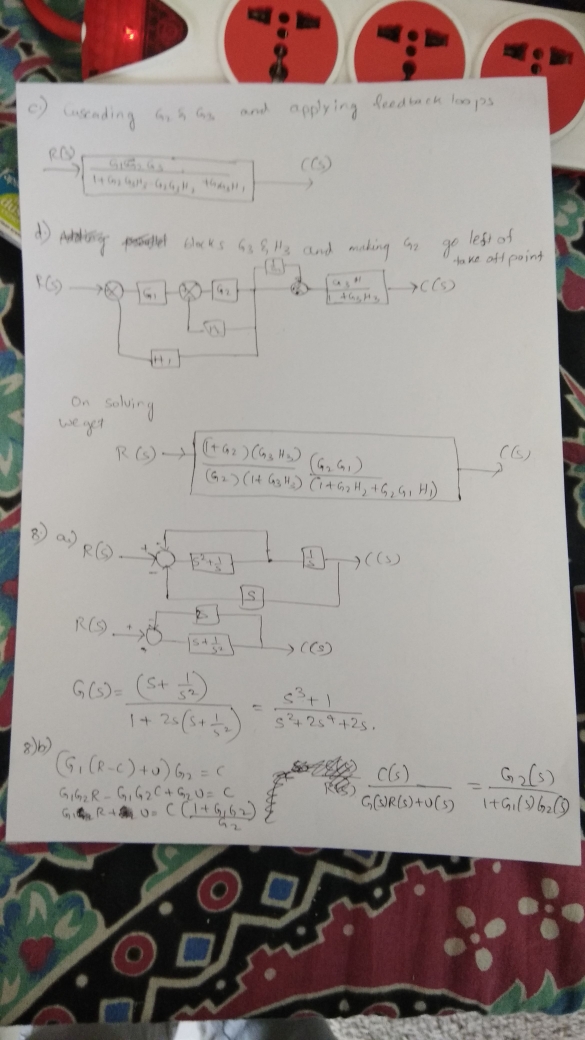 c) Cascading G2 & G3 and applying feedback loops
R(s)
G1G2G3
C(s)
d) blocks G3 & H3 and making G2 go left of
take off point
R(s)
G1
G2
1+G3H3
C(s)
H1
On solving
we get
R(s)
(1+G2)(G3H3) (G2G1)
(G2)(1+G3H3) (1+G2H2+G2G1H1)
C(s)
8) a)
R(s)
+
-
s²+1/s
1/s
C(s)
s
R(s)
+
s+1/s²
C(s)
G(s) = (s+1/s²) / 1+2s(s+1/s²) = s³+1 / s²+2s⁴+2s.
8)b)
(G1(R-C)+U)G2 = C
G1G2R - G1G2C + G2U = C
G1R + U = C(1+G1G2)/G2
C(s) / G1(s)R(s)+U(s) = G2(s) / 1+G1(s)G2(s)